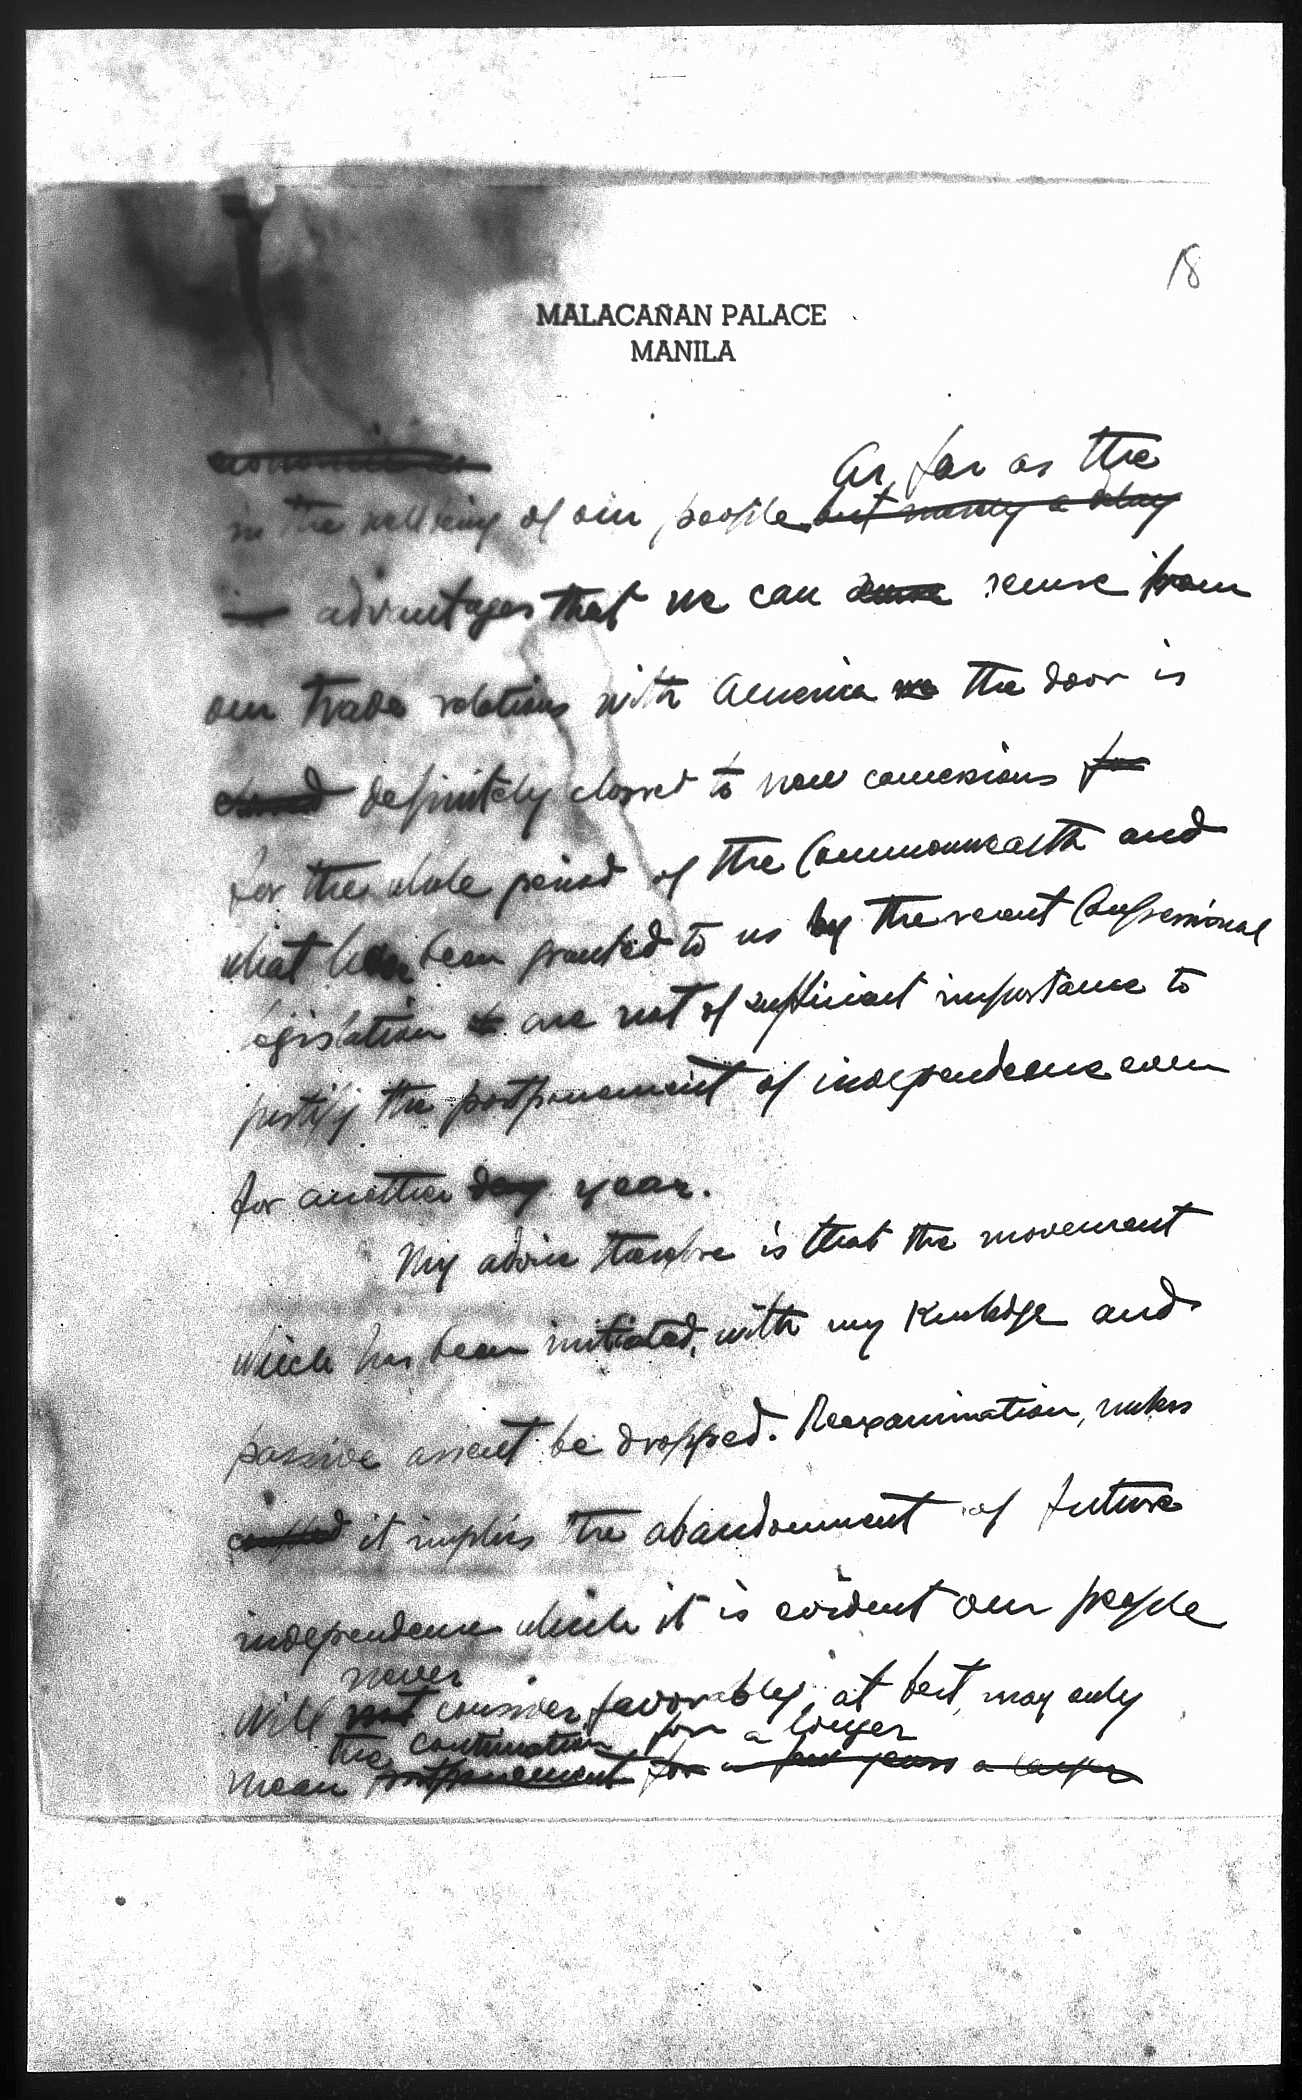 18
MALACAÑAN PALACE
MANILA
As far as the
in the wellbeing of our people. but merely a delay
in advantages that we can secure from
our trade relations with America we the door is
closed definitely closed to new concessions for
for the whole period of the Commonwealth and
what has been granted to us by the recent Congressional
legislation is are not of sufficient importance to
justify the postponement of independence even
for another day year.
My advice therefore is that the movement
which has been initiated, with my knowledge and
passive assent be dropped. Reexamination, unless
it implies the abandonment of future
independence which it is evident our people
never
will not consider favorably, at best, may only
the continuation for a longer
mean postponement for a few years a longer